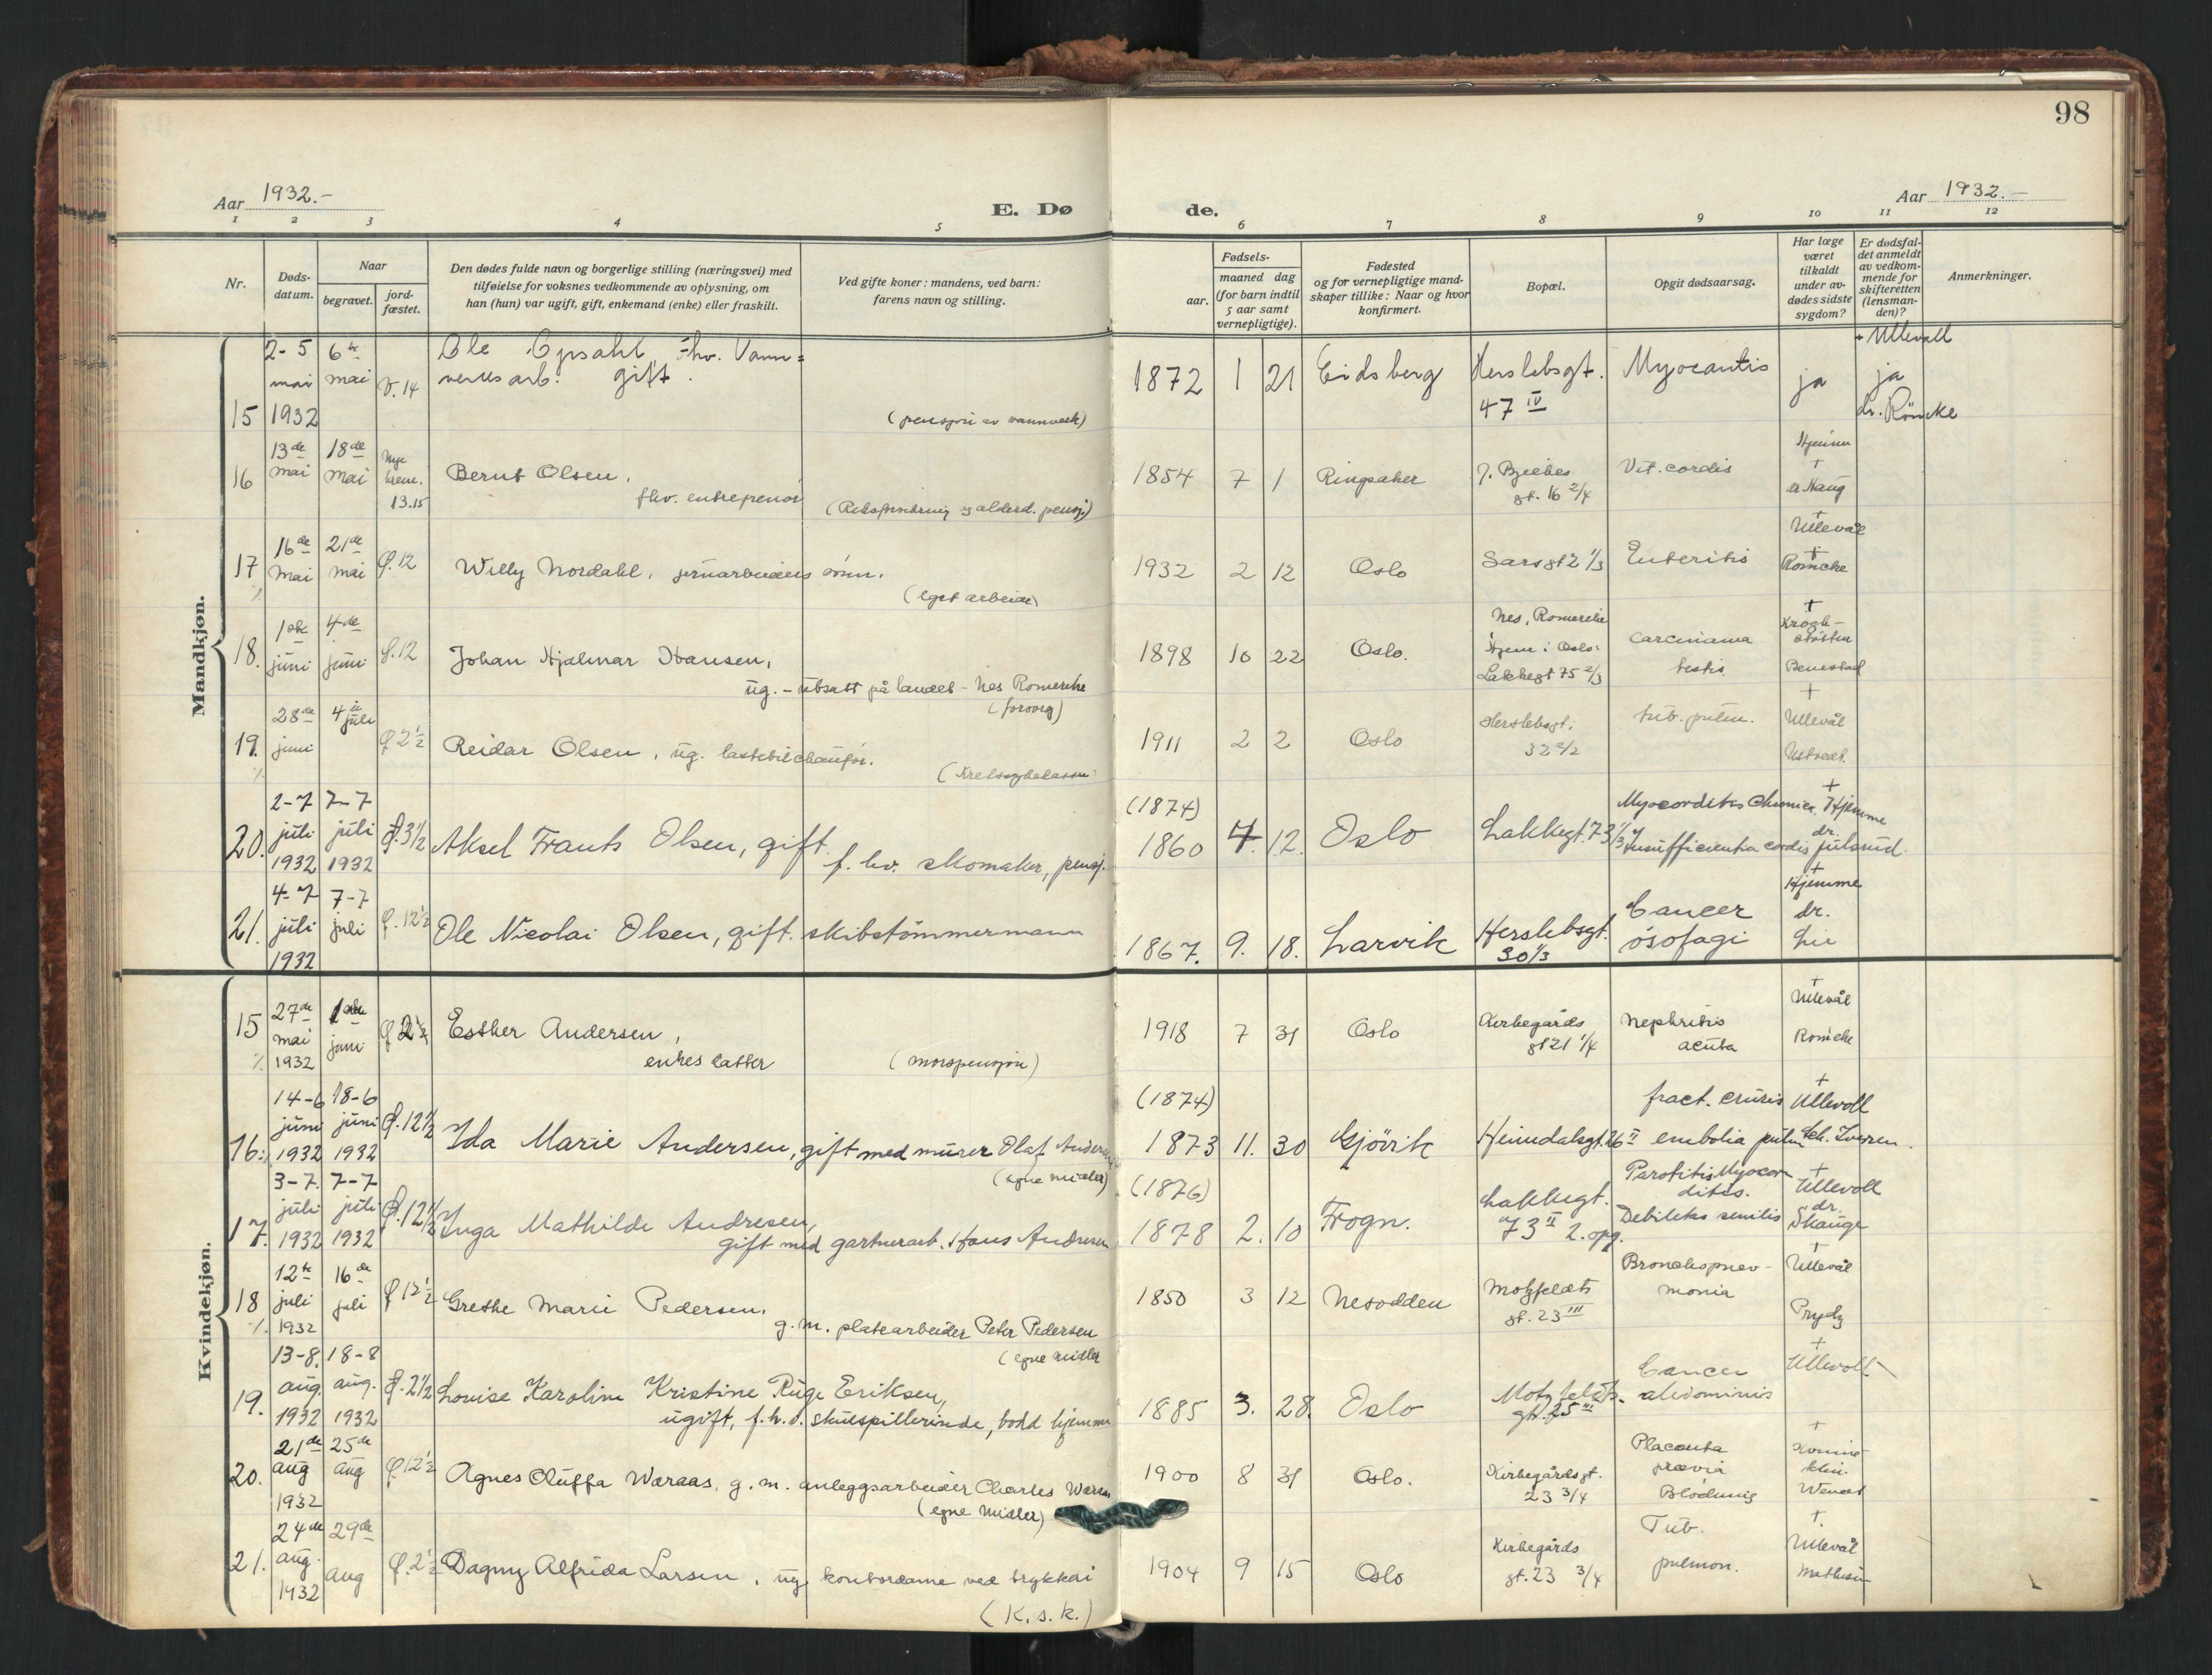 98
Aar 1932.-
E. Dø
de.
Aar 1932.-
1 2 3 4 5 6 7 8 9 10 11 12
Nr.
Døds-
datum.
Naar
begravet.
jord-
fæstet.
Den dødes fulde navn og borgerlige stilling (næringsvei) med
tilføielse for voksnes vedkommende av oplysning, om
han (hun) var ugift, gift, enkemand (enke) eller fraskilt.
Ved gifte koner: mandens, ved barn:
farens navn og stilling.
aar.
Fødsels-
maaned dag
(for barn indtil
5 aar samt
vernepligtige).
Fødested
og for vernepligtige mand-
skaper tillike: Naar og hvor
konfirmert.
Bopæl.
Opgit dødsaarsag.
Har læge
været
tilkaldt
under av-
dødes sidste
sygdom?
Er dødsfal-
det anmeldt
av vedkom-
mende for
skifteretten
(lensman-
den)?
Anmerkninger.
Mandkjøn.
15 2-5 mai 1932 6te mai V. 14
Ole Opsahl, fhv. Vann-
verksarb. gift.
1872 1 21 Eidsberg Herslebsgt. 47 IV ja
+ Ullevall
ja
dr. Römcke
16 13de mai 18de mai Nye krem. 13.15
Bernt Olsen,
fhv. entreprenør
1854 7 1 Ringsaker gt. 16 2/4 Vit. cordis
Hjemme
+
dr Haug
17 16de mai 21de mai 12
Willy Nordahl, jernarbeiders sønn.
(eget arbeide)
1932 2 12 Oslo Sarsgt 2 1/3 Enteritis
+
Ullevål
Römcke
18. 1ste juni 4de juni 12
Johan Hjalmar Hansen,
ug. - utsatt på landet - Nes Romerike
(forsorg)
1898 10 22 Oslo. Nes, Romerike
Hjem i Oslo:
Lakkegt 75 2/3
carcinoma
testis.
+
Krogh-
støtten
Benestad
19. 28de juni 4de juli 2 1/2
Reidar Olsen, ug. lastebilchaufør.
1911 2 2 Oslo Herslebsgt. 32 2/2 tub. pulm.
+
Ullevål
Ustvedt.
20. 2-7 juli 1932 7-7 juli 1932 3 1/2
Aksel Frants Olsen, gift
f. hv. skomaker, pensj.
(1874)
1860 7. 12. Oslo Lakkegt. 73 1/3
Myocorditis Chronica.
Insufficientia cordis
+
Hjemme
dr.
Julsrud.
21. 4-7 juli 1932 7-7 juli 12 1/2
Ole Nicolai Olsen, gift. skibstømmermann
1867. 9. 18. Larvik Herslebsgt. 30 1/3
Cancer
øsofagi
+
Hjemme
dr.
Lie
Kvindekjøn.
15 27de mai 1932 juni 2 1/2
Esther Andersen,
enkes datter
(morspensjon)
1918 7 31 Oslo Kirkegårds
gt 21 1/4
Nephritis
acuta
+
Ullevål
Römcke
16. 14-6 juni 1932 18-6 juni 1932 12 1/2
Ida Marie Andersen, gift med murer Olaf Andersen
(egne midler)
(1874)
1873 11. 30 Gjövik Heimdalsgt. 26 II
fract. cruris
embolia pulm.
+
Ullevoll
17. 3-7. juli 1932 7-7 juli 1932 12 1/2
Inga Mathilde Andresen,
gift med gartnerarb. Hans Andresen
(1876)
1878 2. 10 Frogn. Lakkegt.
73 II 2. opg.
Parotitis Myocor
ditis.
Debilitas senilis
+
Ullevoll
dr.
Skauge
18 12te juli 1932 16de juli 12 1/2
Grethe Marie Pedersen.
g. m. platearbeider Peter Pedersen
(egne midler
1850 3 12 Nesodden Motzfeldts
gt. 23 III
Bronchopnev-
monia
+
Ullevål
Prydz
19. 13-8. aug. 1932 18-8 aug. 1932 2 1/2
Louise Karoline Kristine Ruge Eriksen,
ugift, f. h. v. skuespillerinde, bodd hjemme
1885 3. 28. Oslo Motzfeldts.
gt. 25 III
Cancer
abdominis
+
Ullevoll
20. 21de aug 1932 25de aug 12 1/2
Agnes Oluffa Waraas, g. m. anleggsarbeider Charles Waraas
(egne midler)
1900 8 31 Oslo. Kirkegårdsgt.
23 3/4
Placenta
prævia
Blödning
+
Kvinne
klin.
21. 24de aug. 1932 29de aug 2 1/2
Dagny Alfrida Larsen, ug. kontordame ved trykkeri
(K.s.k.)
1904 9 15 Oslo Kirkegårds
gt. 23 3/4
Tub.
pulmon.
+
Ullevål